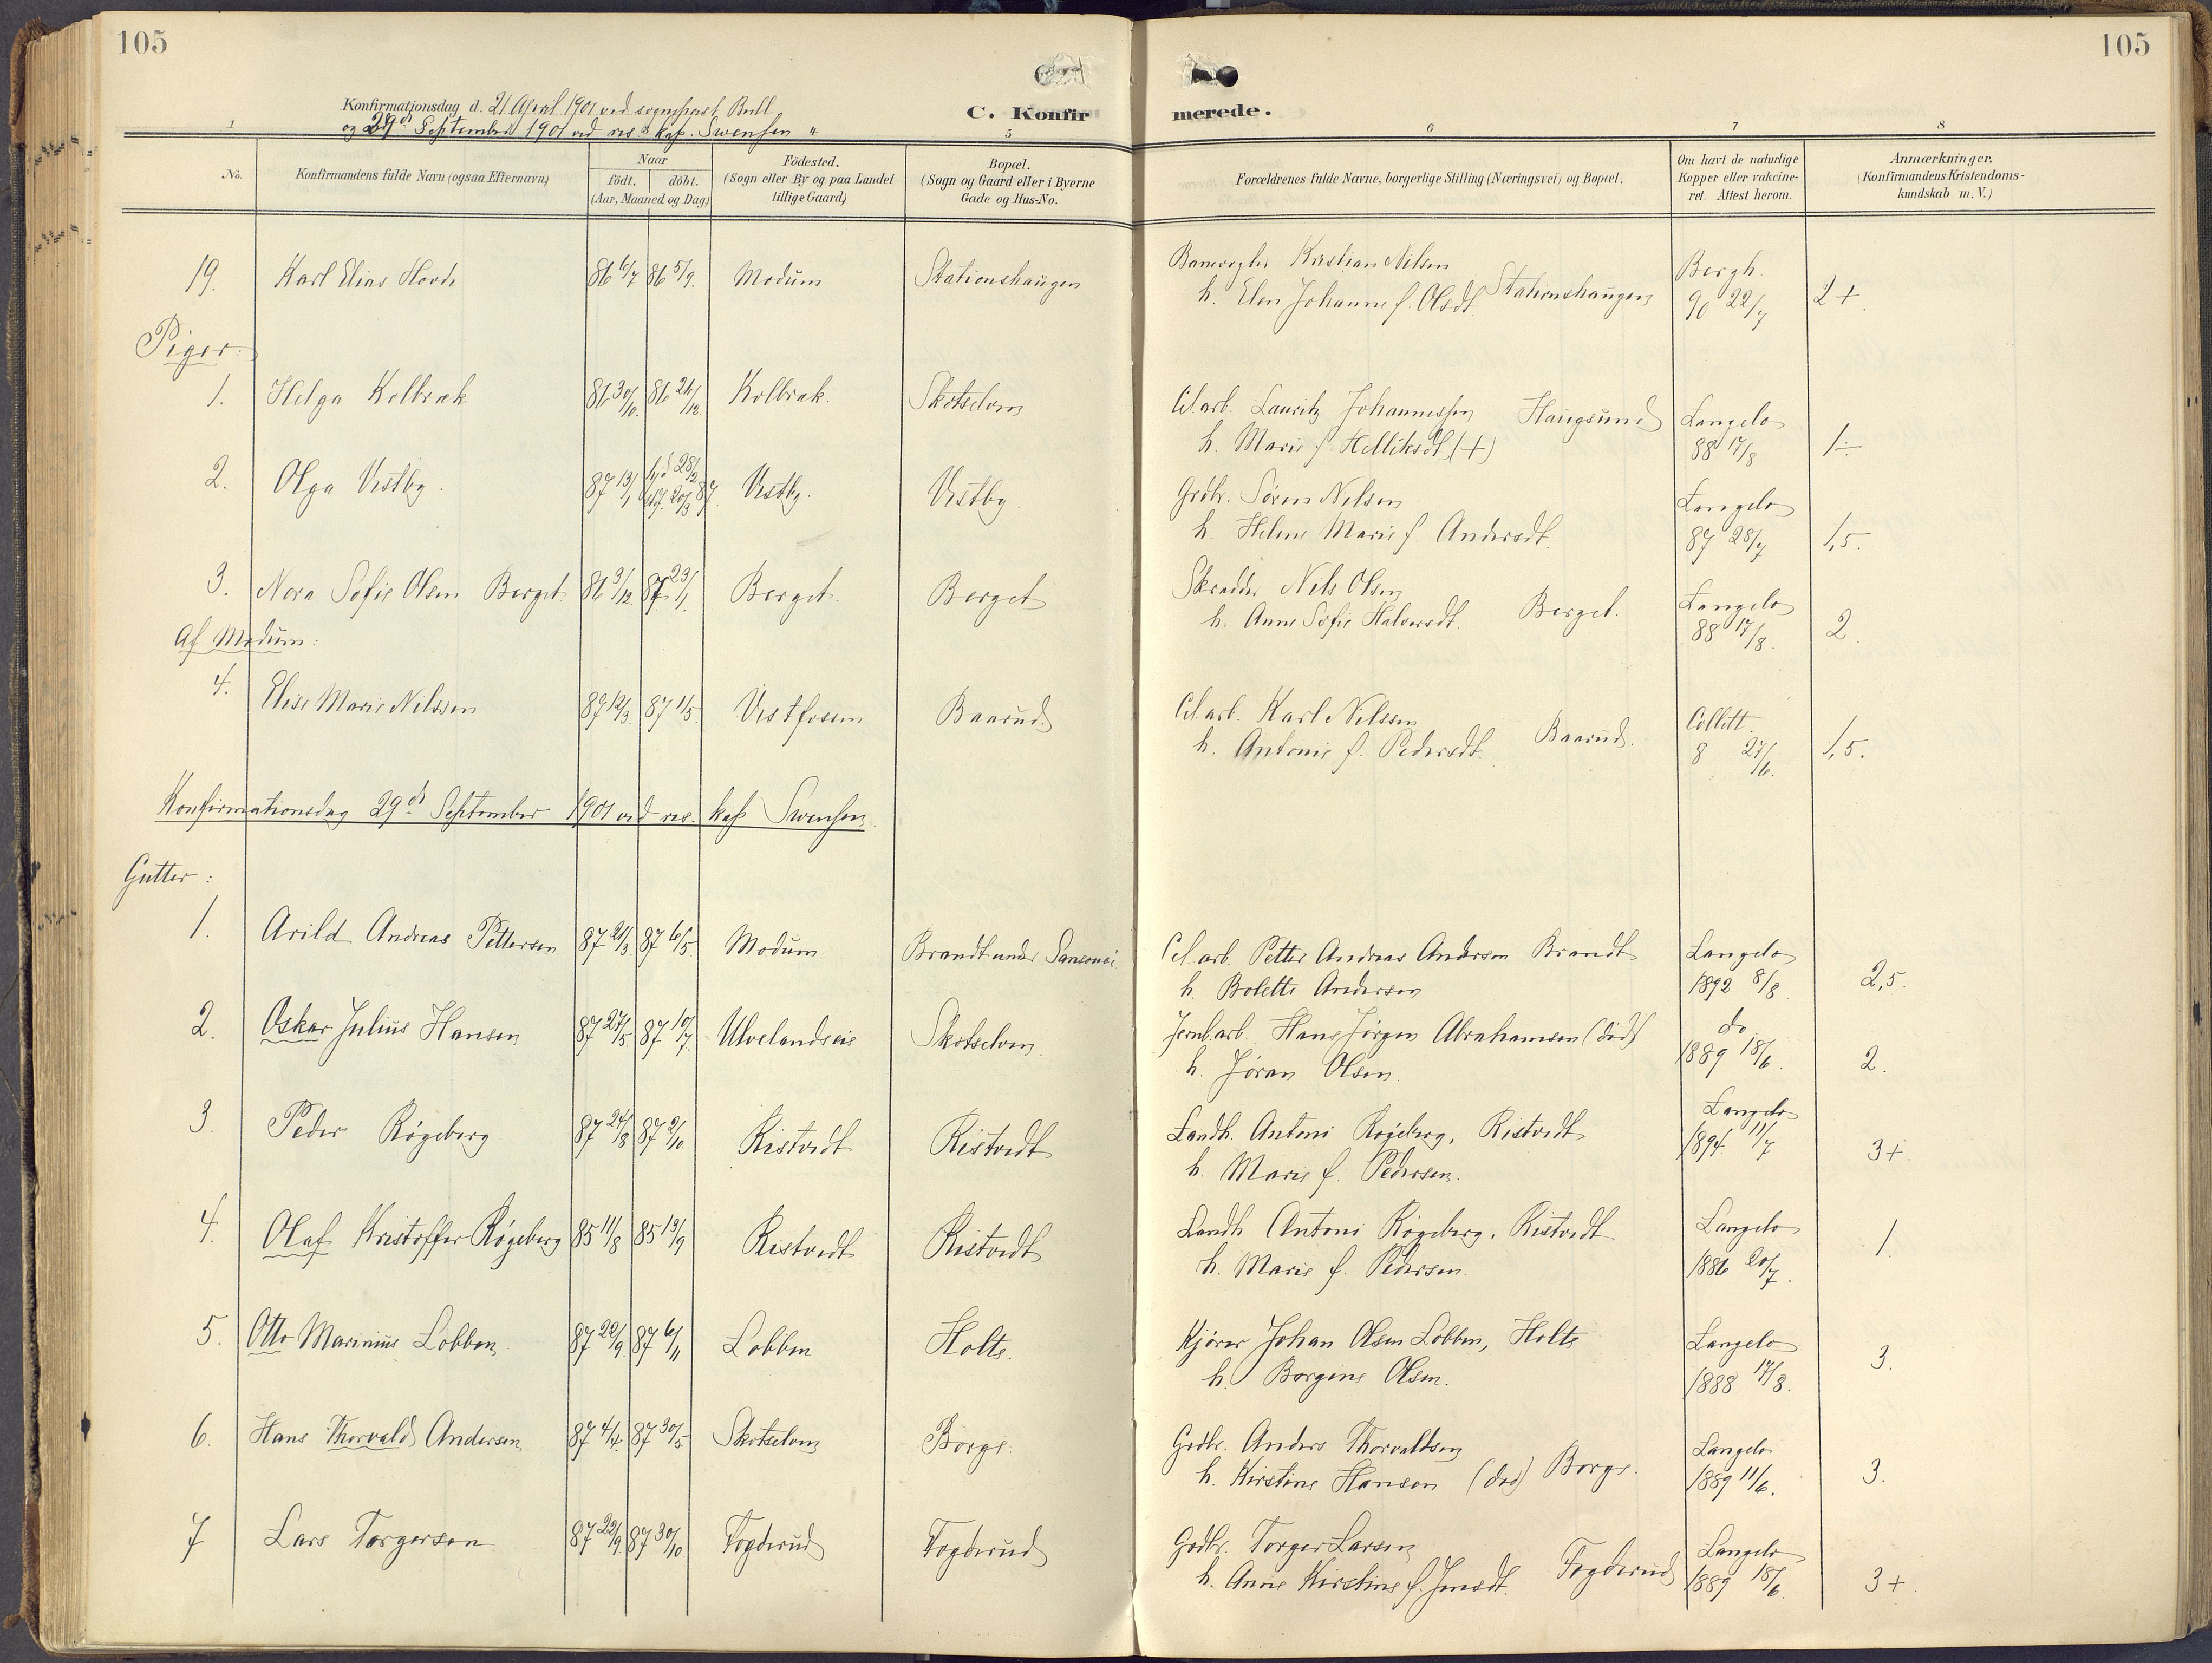 105
105
Konfirmationsdag d. 21 April 1901 ved sogneprest Bull
og 29de September 1901 ved res. kap. Swensen "
C. Konfirmerede.
1 5 6 7 8
No.
Konfirmandens fulde Navn (ogsaa Efternavn)
Naar
født. døbt.
(Aar, Maaned og Dag)
Fødested.
(Sogn eller By og paa Landet
tillige Gaard)
Bopæl.
(Sogn og Gaard eller i Byerne
Gade og Hus-No.
Forældrenes fulde Navne, borgerlige Stilling (Næringsvei) og Bopæl.
Om havt de naturlige
Kopper eller vakcine-
ret. Attest herom.
Anmærkninger.
(Konfirmandens Kristendoms-
kundskab m. V.)
19. Karl Elias Hovde 86 6/7 86 5/9. Modum Stationshaugen Banevogter Kristian Nilsen Bergh.
h. Elen Johanne f. Olsdt. Stationshaugen 90 22/7 2+
Piger:
1. Helga Kolbræk 86 30/10. 86 26/12. Kolbræk. Skotselven Cel. arb. Lauritz Johannessen Haugsund Langelo
h. Marie f. Helliksdt (+) 88 17/8 1÷
2. Olga Vestby. 87 13/1 hjd 28/2 20/3 87. Vestby. Vestby Grdbr. Søren Nilsen Langelo
h. Helene Marie f. Andersdt. 87 28/7 1,5.
3. Nora Sofie Olsen Berget. 86 3/12 87 23/1. Berget. Berget Skrædder Nils Olsen Langelo
h. Anne Sofie Halvorsdt. Berget. 88 17/8. 2.
Af Modum:
4. Elise Marie Nilssen 87 12/3. 87 1/5. Vestfossen Baarud. Cel. arb. Karl Nilssen Collett.
h. Antonie f. Pedersdt. Baarud. 8 27/6. 1,5.
Konfirmationsdag 29de September 1901 ved res. kap Swensen.
Gutter:
1. Arild Andreas Pettersen 87 21/3. 87 6/5. Modum Brandt under Cel. arb. Petter Andreas Andersen Brandt Langelo
h. Bolette Andersen 1892 8/8. 2,5.
2. Oskar Julius Hansen 87 27/5. 87 10/7. Ulvelandseie Skotselven. Jernb. arb. Hans Jørgen Abrahamsen (død) do
h. Jøran Olsen. 1889 18/6. 2.
3. Peder Røgeberg 87 24/8 87 2/10. Ristvedt Ristvedt Landh. Antoni Røgeberg, Ristvedt Langelo
h. Marie f. Pedersen. 1894 11/7 3+.
4. Olaf Kristoffer Røgeberg 85 11/8 85 13/9 Ristvedt Ristvedt Landh Antoni Røgeberg, Ristvedt Langelo
h. Marie f. Pedersen. 1886 20/7. 1.
5. Otto Marinius Lobben. 87 22/9. 87 6/11 Lobben Holte. Kjører Johan Olsen Lobben, Holte Langelo
h. Borgine Olsen. 1888 17/8. 3.
6. Hans Thorvald Andersen 87 4/4. 87 30/5 Skotselven Borge. Grdbr. Anders Thorvaldsen Langelo
h. Kirstine Hansen (død) Borge. 1889 11/6. 3.
7 Lars Torgersen 87 22/9. 87 30/10. Fogderud Fogderud Grdbr. Torger Larsen Langelo
h. Anne Kirstine f. Jensdt. Fogderud 1889 18/6. 3+.